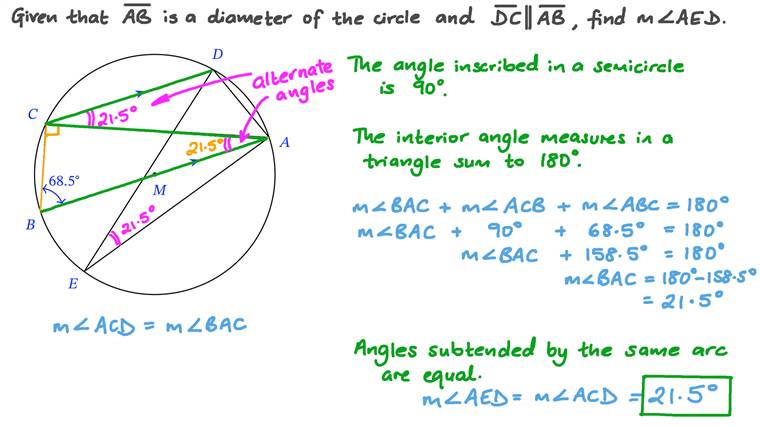 Given that AB is a diameter of the circle and DC ∥ AB, find m∠AED.
D
alternate
angles
C
21.5°
21.5°
A
68.5°
M
B
21.5°
E
m∠ACD = m∠BAC
The angle inscribed in a semicircle
is 90°.
The interior angle measures in a
triangle sum to 180°.
m∠BAC + m∠ACB + m∠ABC = 180°
m∠BAC + 90° + 68.5° = 180°
m∠BAC + 158.5° = 180°
m∠BAC = 180° - 158.5°
= 21.5°
Angles subtended by the same arc
are equal.
m∠AED = m∠ACD = 21.5°